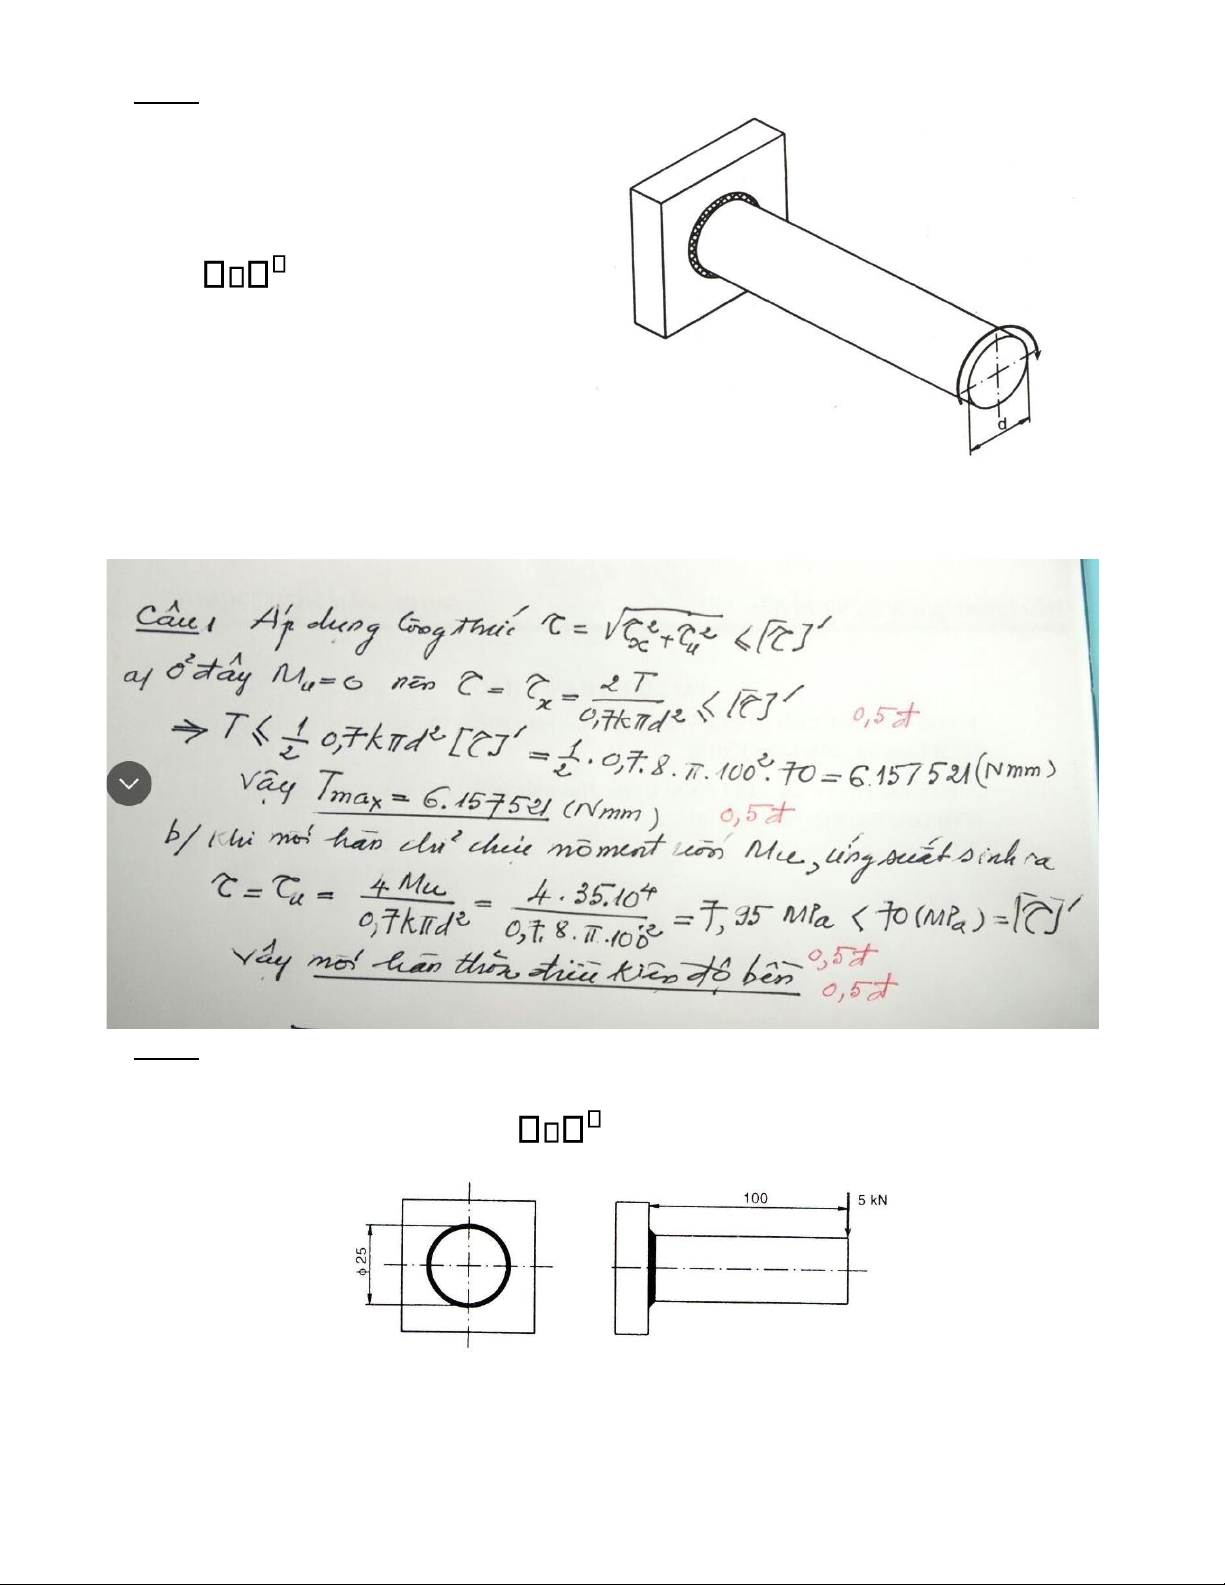 d
Câu 1 Áp dụng công thức τ = √τx² + τu² ≤ [τ]'
a/ ở đây Mu = 0 nên τ = τx = 2T / 0,7kπd² ≤ [τ]' 0,5đ
⇒ T ≤ 1/2 0,7kπd² [τ]' = 1/2 . 0,7. 8. π. 100². 70 = 6.157521 (Nmm)
Vậy Tmax = 6.157521 (Nmm) 0,5đ
b/ Khi mối hàn chỉ chịu môment uốn Mu, ứng suất sinh ra
τ = τu = 4 Mu / 0,7kπd² = 4 . 35.10⁴ / 0,7. 8. π. 100² = 7,95 MPa < 70 (MPa) = [τ]'
Vậy mối hàn thỏa điều kiện độ bền 0,5đ
0,5đ
100
5 kN
ϕ 25